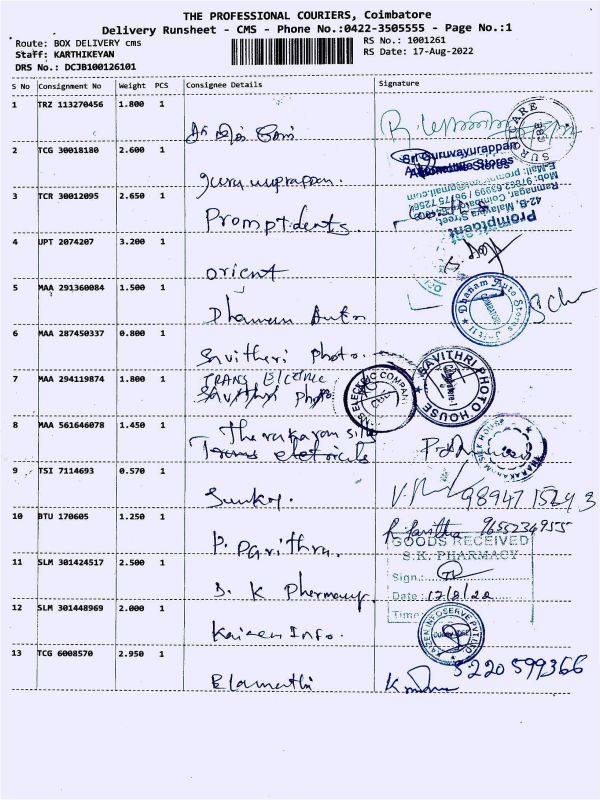 THE PROFESSIONAL COURIERS, Coimbatore
Delivery Runsheet - CMS - Phone No.:0422-3505555 - Page No.:1
Route: BOX DELIVERY cms
RS No.: 1001261
Staff: KARTHIKEYAN
RS Date: 17-Aug-2022
DRS No.: DCJB100126101
S No Consignment No Weight PCS Consignee Details Signature
1 TRZ 113270456 1.800 1
SURO CARE CBE
2 TCG 30018180 2.600 1
guru uuprappan.
Sri Guruvayurappan
Automobile Stores
3 TCR 30012095 2.650 1
Promptdents
Promptdent
42-B, Malaviya Street,
Ramnagar, Coimbatore
4 UPT 2074207 3.200 1
orient
5 MAA 291360084 1.500 1
Dhanam Auto
Dhanam Auto Stores
6 MAA 287450337 0.800 1
Savitheri photo.
SAVITHRI PHOTO HOUSE
7 MAA 294119874 1.800 1
TRANS
Savithri photo
ELECTRIC COMPANY CBE
8 MAA 561646078 1.450 1
Tharakaram silk
Trams eletricals
THARAKARAM SILK HOUSE
9 TSI 7114693 0.570 1
10 BTU 170605 1.250 1
P. Parithra.
9655236955
11 SLM 301424517 2.500 1
S. K Phermacy
GOODS RECEIVED
S.K. PHARMACY
Sign.:
Date: 17/8/22
Time:
12 SLM 301448969 2.000 1
Kaizen Info.
KAIZEN INFOSERVE PVT LTD
13 TCG 6008570 2.950 1
Elamathi
5220599366